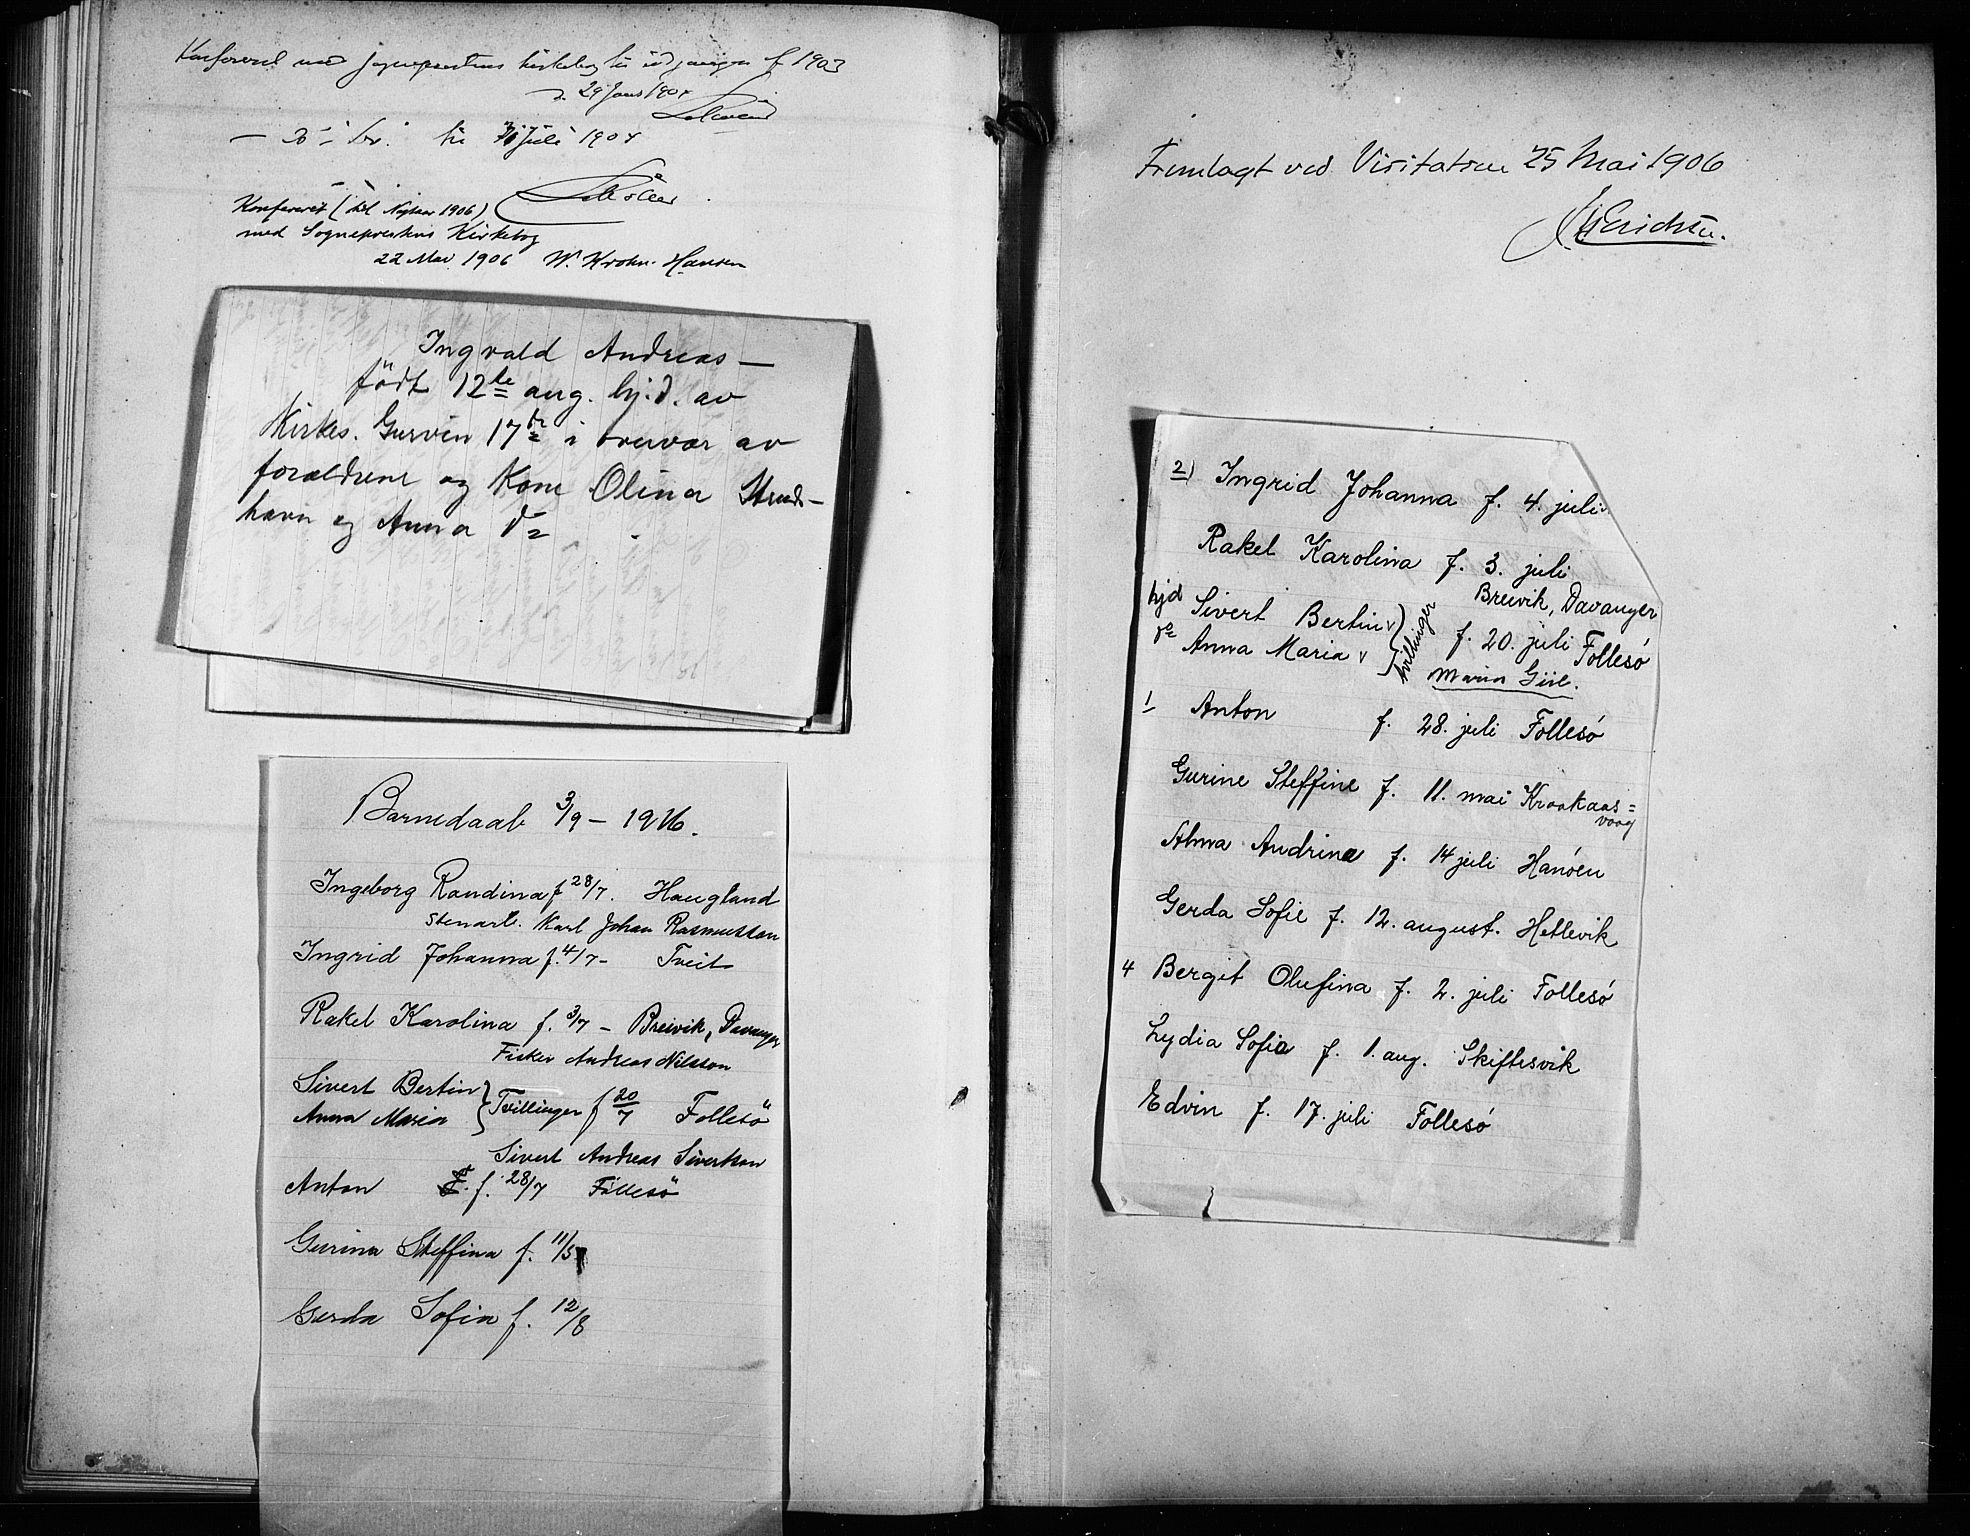 Konfereret med sogneprestens kirkebog til udgangen af 1903
d. 29 Jans 1904
— Do — Do. til 31 Juli 1904
Konfereret (til Nytaar 1906)
med Sogneprestens Kirkebog
22 Mai 1906 W. Krohn-Hansen
Ingvald Andreas —
födt 12te aug. hj.d. av
Kirkes. Gurvin 17de i overvær av
forældrene og Kone Olina Strus-
havn og Anna do
Barnedaab 3/9 – 1916.
Ingeborg Randina f 28/7. Haugland
Stenarb. Karl Johan Rasmussen
Ingrid Johanna f. 4/7 – Tveit
Rakel Karolina f. 3/7 – Breivik, Davanger
Fisker Andreas Nilsson
Sivert Bertin } Tvillinger f 20/7 Follesö
Anna Maria
Sivert Andreas Sivertsen
Anton f. 28/7 Föllesö
Gurina Steffina f. 11/5
Gerda Sofia f. 12/8
Fremlagt ved Visitatsen 25 Mai 1906
Erichsen.
2) Ingrid Johanna f. 4. juli
Rakel Karolina f. 3. juli
Breivik, Davanger
hjd Sivert Bertin v } tvillinger f. 20. juli Follesó
do Anna Maria v
Maria Giil.
1 Anton f. 28. juli Follesó
Gurine Steffine f. 11. mai Kraakaas=
vaag
Alma Andrine f. 14 juli Hanóen
Gerda Sofie f. 12. august. Hetlevik
4 Bergit Olufina f. 2. juli Follesó
Lydia Sofia f. 1. aug. Skiftesvik
Edvin f. 17. juli Follesó